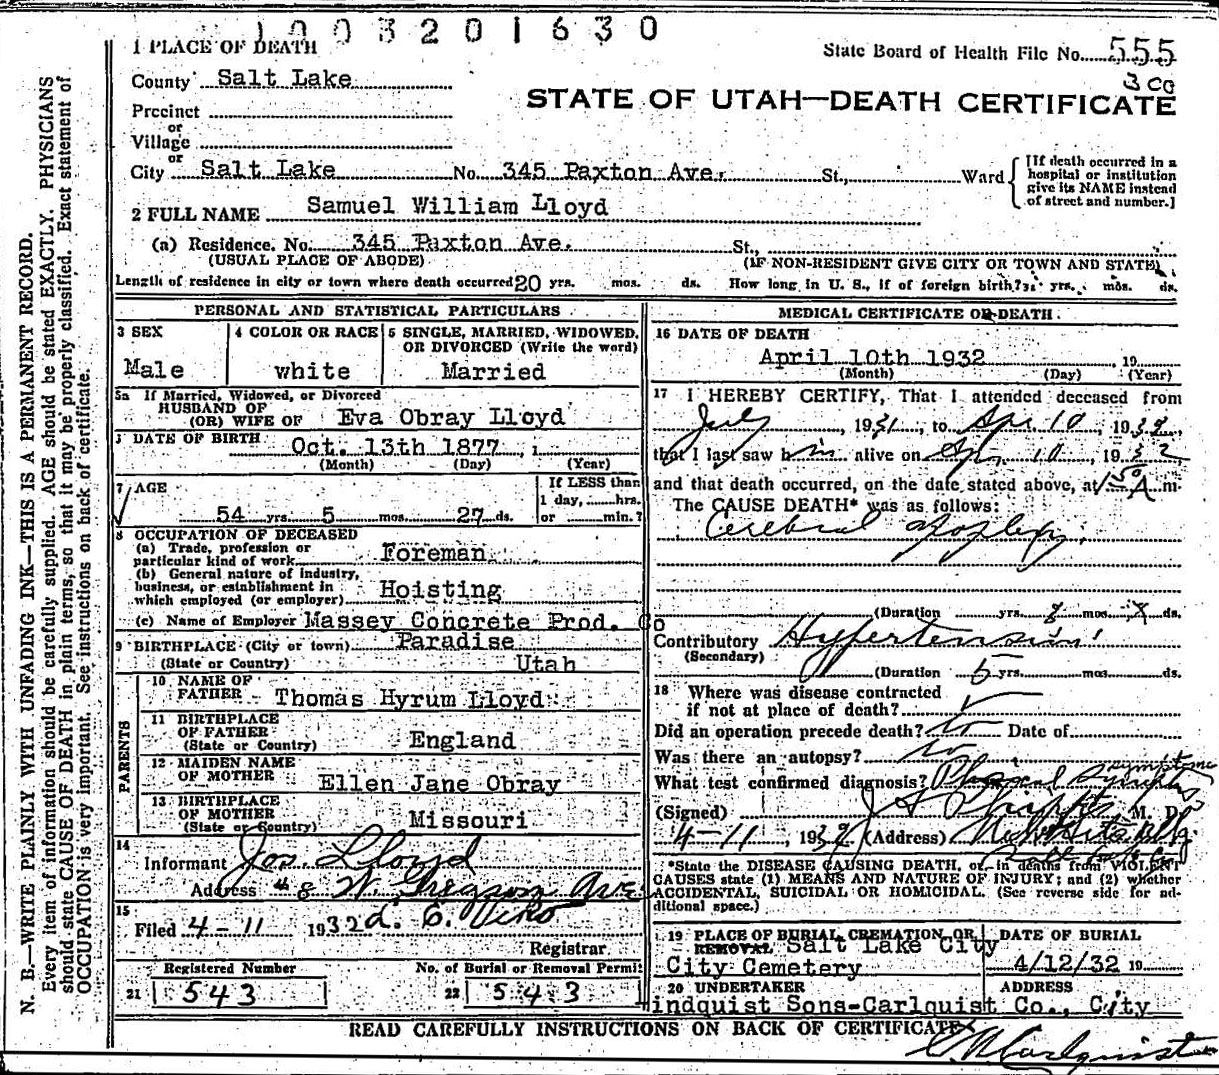 1003201630
1 PLACE OF DEATH
State Board of Health File No. 555
3 CO
County Salt Lake
STATE OF UTAH—DEATH CERTIFICATE
Precinct
or
Village
or
City Salt Lake No. 345 Paxton Ave. St., Ward [If death occurred in a hospital or institution give its NAME instead of street and number.]
2 FULL NAME Samuel William Lloyd
(a) Residence. No. 345 Paxton Ave. St.,
(USUAL PLACE OF ABODE) (IF NON-RESIDENT GIVE CITY OR TOWN AND STATE)
Length of residence in city or town where death occurred 20 yrs. mos. ds. How long in U. S., if of foreign birth? yrs. mos. ds.
PERSONAL AND STATISTICAL PARTICULARS
3 SEX
Male
4 COLOR OR RACE
white
5 SINGLE, MARRIED, WIDOWED,
OR DIVORCED (Write the word)
Married
5a If Married, Widowed, or Divorced
HUSBAND OF
(OR) WIFE OF Eva Obray Lloyd
DATE OF BIRTH Oct. 13th 1877, 1
(Month) (Day) (Year)
7 AGE
54 yrs. 5 mos. 27 ds.
If LESS than
1 day, hrs.
or min.?
8 OCCUPATION OF DECEASED
(a) Trade, profession or
particular kind of work Foreman
(b) General nature of industry,
business, or establishment in
which employed (or employer) Hoisting
(c) Name of Employer Massey Concrete Prod. Co
9 BIRTHPLACE (City or town) Paradise
(State or Country) Utah
PARENTS
10 NAME OF
FATHER Thomas Hyrum Lloyd
11 BIRTHPLACE
OF FATHER
(State or Country) England
12 MAIDEN NAME
OF MOTHER Ellen Jane Obray
13 BIRTHPLACE
OF MOTHER
(State or Country) Missouri
14
Informant Jos. Lloyd
Address 48 W. Gregson Ave
15
Filed 4-11 1932
Registrar
Registered Number
21 543
No. of Burial or Removal Permit
22 543
MEDICAL CERTIFICATE OF DEATH
16 DATE OF DEATH
April 10th 1932, 19
(Month) (Day) (Year)
17 I HEREBY CERTIFY, That I attended deceased from
July, 1931, to Apr 10, 1932,
that I last saw him alive on Apr 10, 1932,
and that death occurred, on the date stated above, at 1:50 A m.
The CAUSE DEATH* was as follows:
Cerebral apoplexy.
(Duration yrs. mos. ds.
Contributory Hypertension
(Secondary)
(Duration 5 yrs. mos. ds.
18 Where was disease contracted
if not at place of death?
Did an operation precede death? no Date of
Was there an autopsy? no
What test confirmed diagnosis? Physical symptoms
(Signed) M. D.
4-11, 1932 (Address)
*State the DISEASE CAUSING DEATH, or in deaths from VIOLENT
CAUSES state (1) MEANS AND NATURE OF INJURY; and (2) whether
ACCIDENTAL, SUICIDAL OR HOMICIDAL. (See reverse side for additional space.)
19 PLACE OF BURIAL, CREMATION, OR
REMOVAL Salt Lake City
City Cemetery
DATE OF BURIAL
4/12/32 19
20 UNDERTAKER
indquist Sons-Carlquist Co., City
ADDRESS
READ CAREFULLY INSTRUCTIONS ON BACK OF CERTIFICATE
N. B.—WRITE PLAINLY WITH UNFADING INK—THIS IS A PERMANENT RECORD.
Every item of information should be carefully supplied. AGE should be stated EXACTLY. PHYSICIANS
should state CAUSE OF DEATH in plain terms, so that it may be properly classified. Exact statement of
OCCUPATION is very important. See instructions on back of certificate.